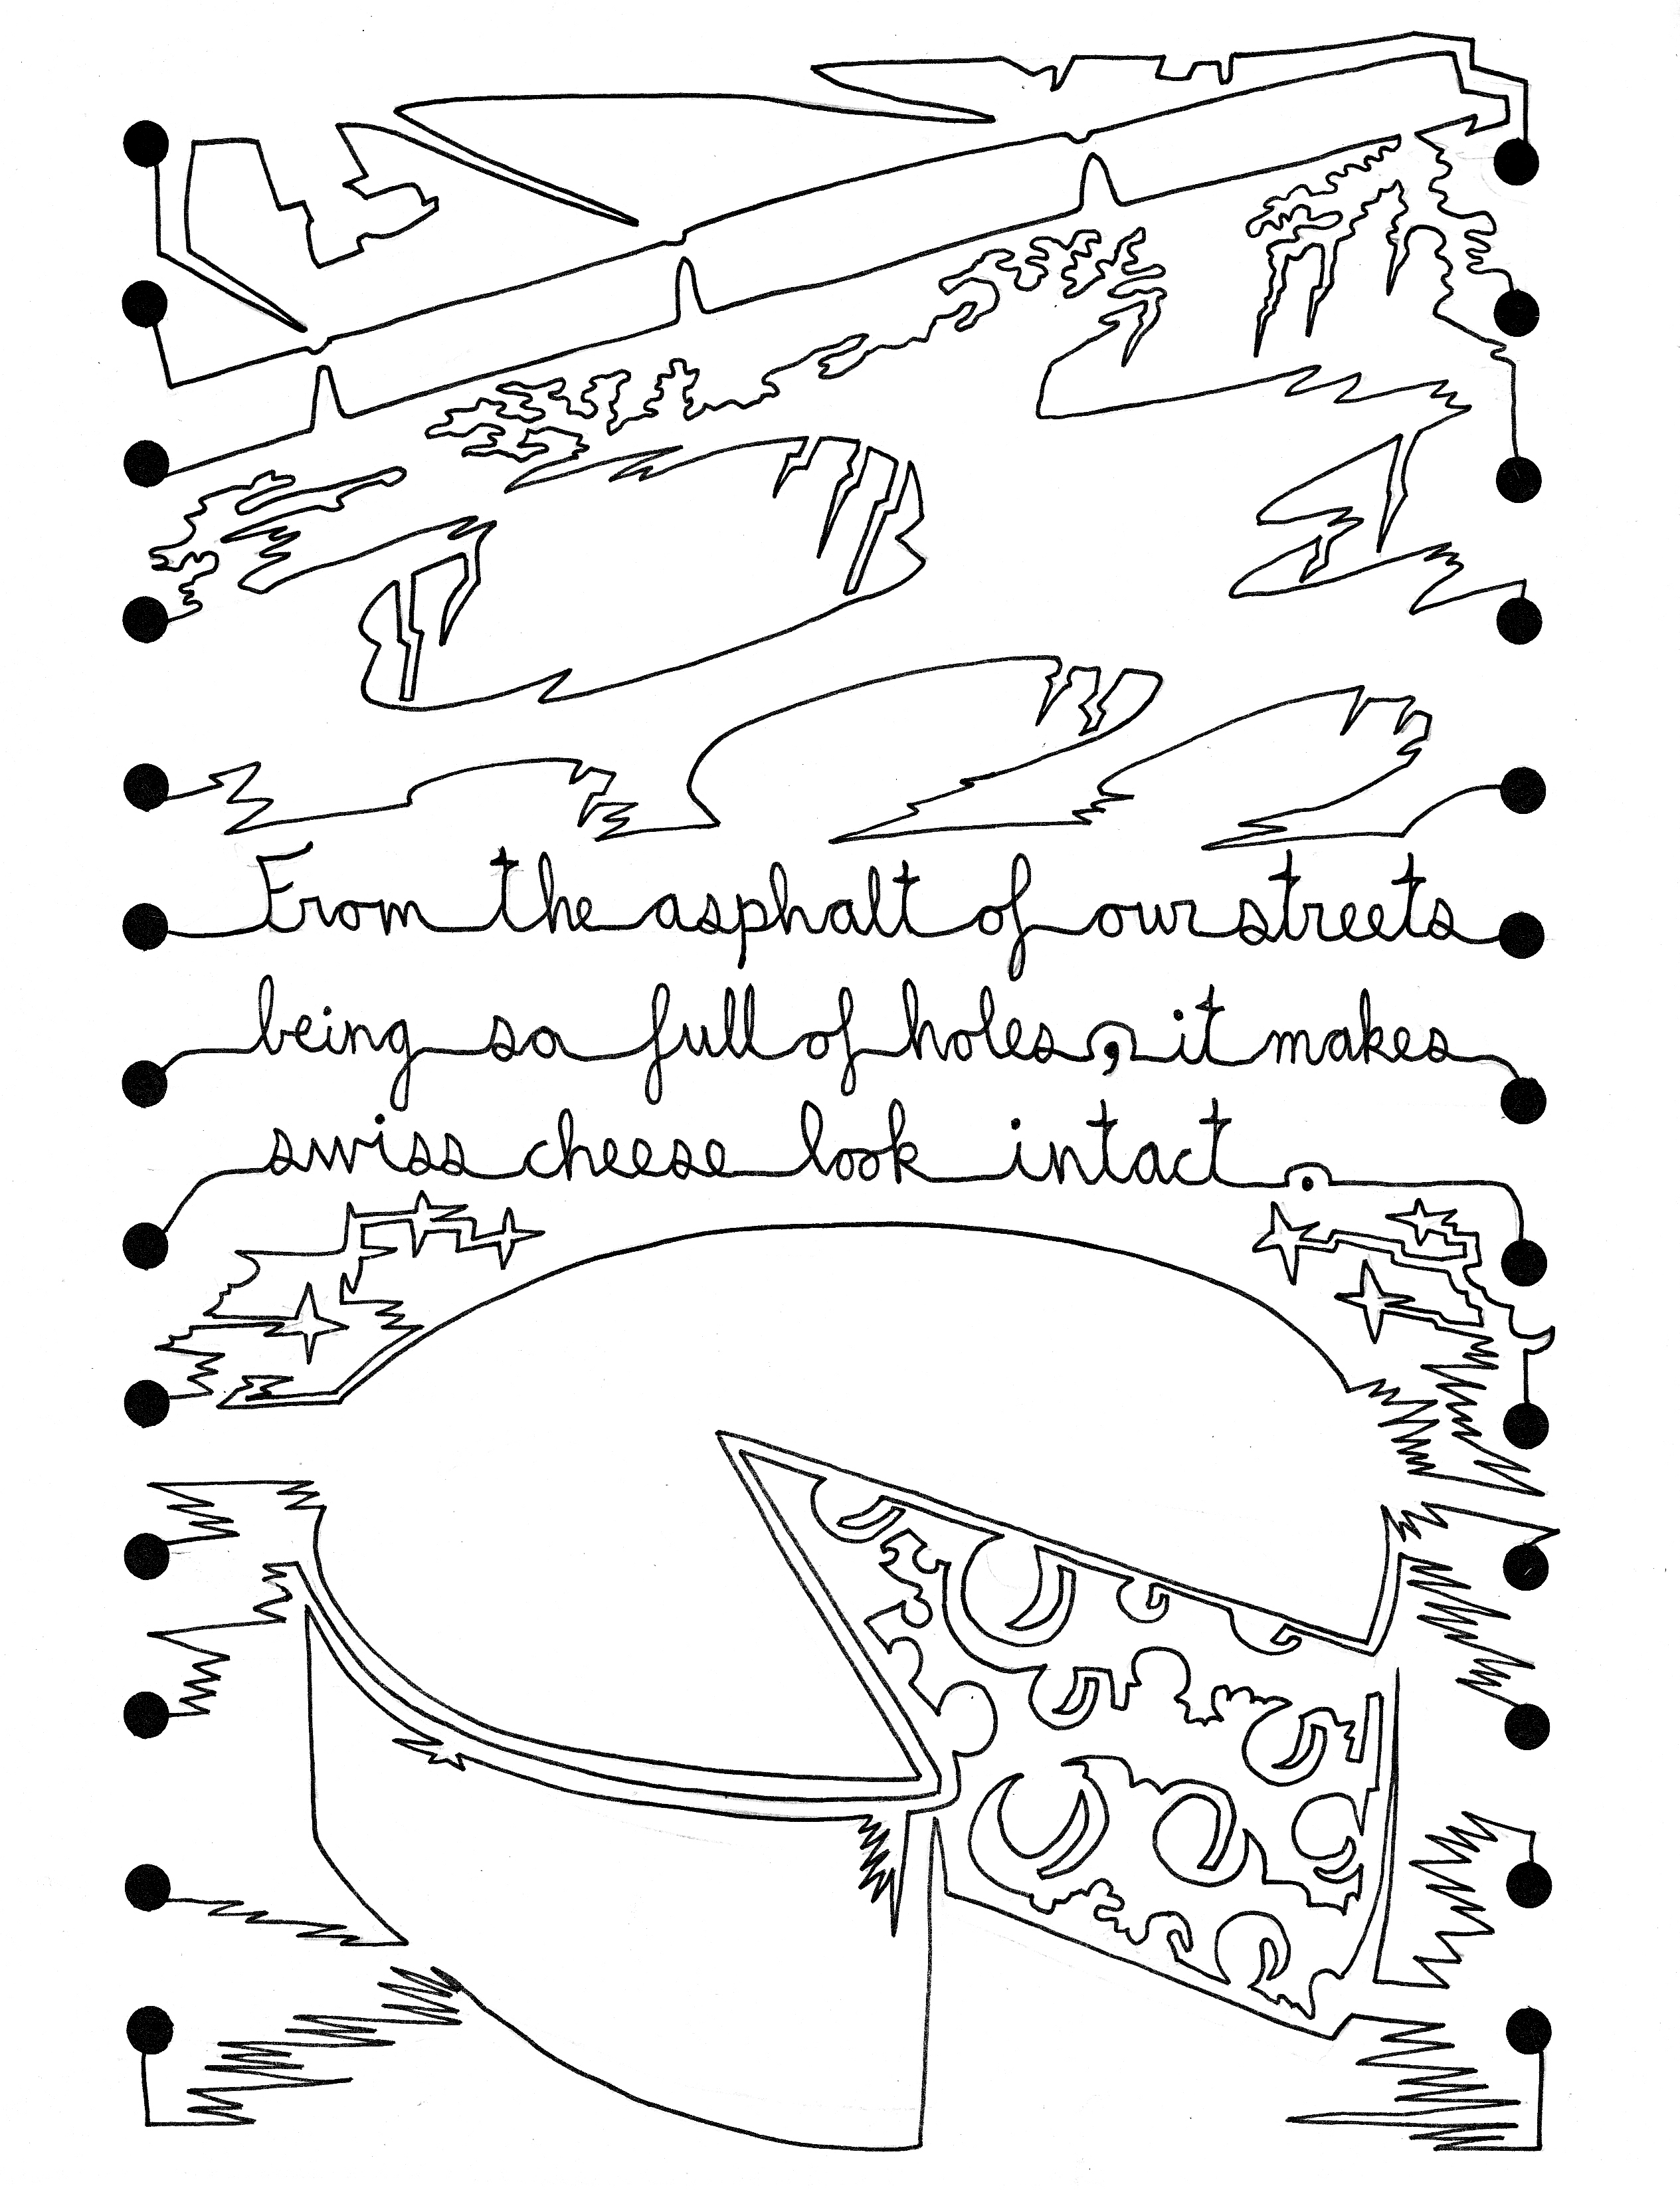 From the asphalt of our streets
being so full of holes, it makes
swiss cheese look intact.